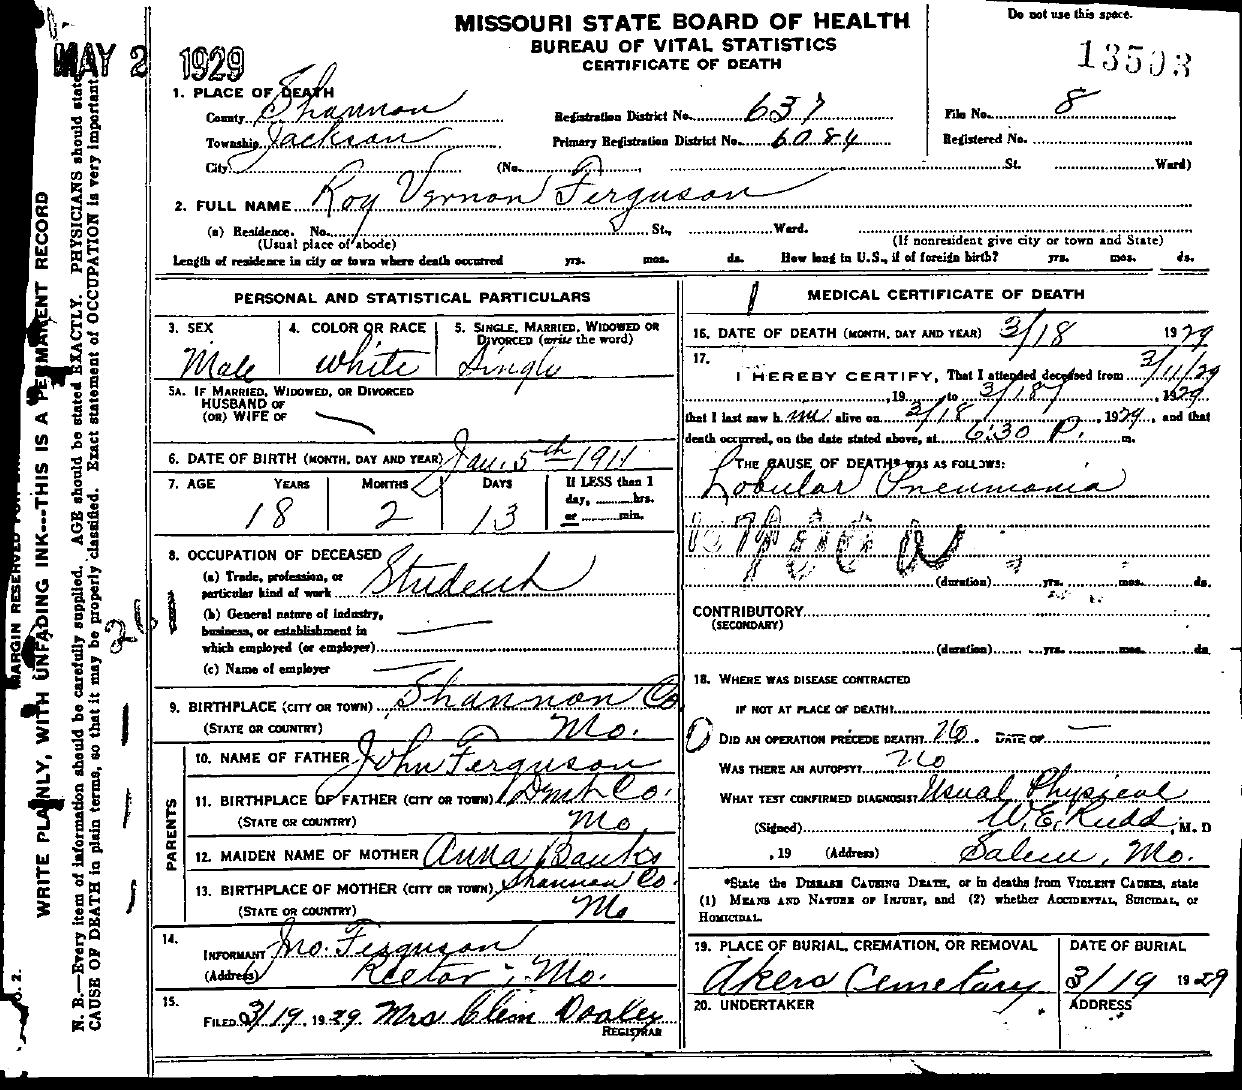 MISSOURI STATE BOARD OF HEALTH
BUREAU OF VITAL STATISTICS
CERTIFICATE OF DEATH
Do not use this space.
MAY 2 1929
13503
1. PLACE OF DEATH
County Shannon Registration District No. 637 File No. 8
Township Jackson Primary Registration District No. 6084 Registered No.
City (No. St. Ward)
2. FULL NAME Roy Vernon Ferguson
(a) Residence. No. St., Ward.
(Usual place of abode) (If nonresident give city or town and State)
Length of residence in city or town where death occurred yrs. mos. ds. How long in U.S., if of foreign birth? yrs. mos. ds.
PERSONAL AND STATISTICAL PARTICULARS
3. SEX 4. COLOR OR RACE 5. SINGLE, MARRIED, WIDOWED OR DIVORCED (write the word)
Male White Single
5A. IF MARRIED, WIDOWED, OR DIVORCED
HUSBAND OF
(OR) WIFE OF
6. DATE OF BIRTH (MONTH, DAY AND YEAR) Jan. 5th 1911
7. AGE YEARS MONTHS DAYS If LESS than 1 day, hrs. or min.
18 2 13
8. OCCUPATION OF DECEASED
(a) Trade, profession, or particular kind of work Student
(b) General nature of industry,
business, or establishment in
which employed (or employer)
(c) Name of employer
9. BIRTHPLACE (CITY OR TOWN) Shannon Co
(STATE OR COUNTRY) Mo.
PARENTS
10. NAME OF FATHER John Ferguson
11. BIRTHPLACE OF FATHER (CITY OR TOWN) Dent Co.
(STATE OR COUNTRY) Mo.
12. MAIDEN NAME OF MOTHER Anna Banks
13. BIRTHPLACE OF MOTHER (CITY OR TOWN) Shannon Co.
(STATE OR COUNTRY) Mo
14. INFORMANT Jno. Ferguson
(Address) Rector, Mo.
15. FILED 3/19, 1929 Mrs Clem Dooley
REGISTRAR
MEDICAL CERTIFICATE OF DEATH
16. DATE OF DEATH (MONTH, DAY AND YEAR) 3/18 1929
17. I HEREBY CERTIFY, That I attended deceased from 3/11/29
, 19 to 3/18, 1929
that I last saw him alive on 3/18 1929, and that
death occurred, on the date stated above, at 6:30 P. m.
THE CAUSE OF DEATH* WAS AS FOLLOWS:
Lobular Pneumonia
(duration) yrs. mos. ds.
CONTRIBUTORY
(SECONDARY)
(duration) yrs. mos. ds.
18. WHERE WAS DISEASE CONTRACTED
IF NOT AT PLACE OF DEATH?
DID AN OPERATION PRECEDE DEATH? No. DATE OF
WAS THERE AN AUTOPSY? No
WHAT TEST CONFIRMED DIAGNOSIS? Usual Physical
(Signed) W.E. Rudd, M. D
, 19 (Address) Salem, Mo.
*State the DISEASE CAUSING DEATH, or in deaths from VIOLENT CAUSES, state
(1) MEANS AND NATURE OF INJURY, and (2) whether ACCIDENTAL, SUICIDAL, or
HOMICIDAL.
19. PLACE OF BURIAL, CREMATION, OR REMOVAL DATE OF BURIAL
Akers Cemetary 3/19 1929
20. UNDERTAKER ADDRESS
WRITE PLAINLY, WITH UNFADING INK---THIS IS A PERMANENT RECORD
N. B.—Every item of information should be carefully supplied. AGE should be stated EXACTLY. PHYSICIANS should state
CAUSE OF DEATH in plain terms, so that it may be properly classified. Exact statement of OCCUPATION is very important